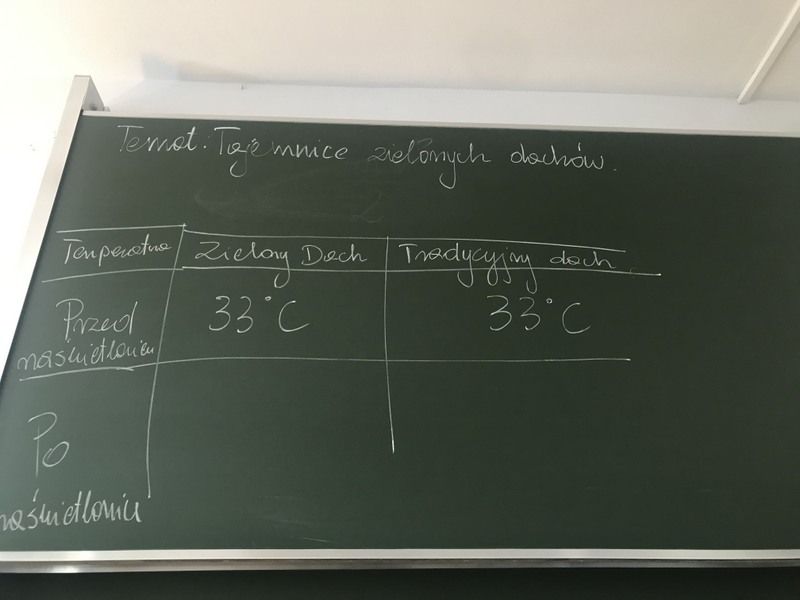 Temat: Tajemnice zielonych dachów.
Temperatura Zielony Dach Tradycyjny dach
Przed 33°C 33°C
naświetleniem
Po
naświetleniu